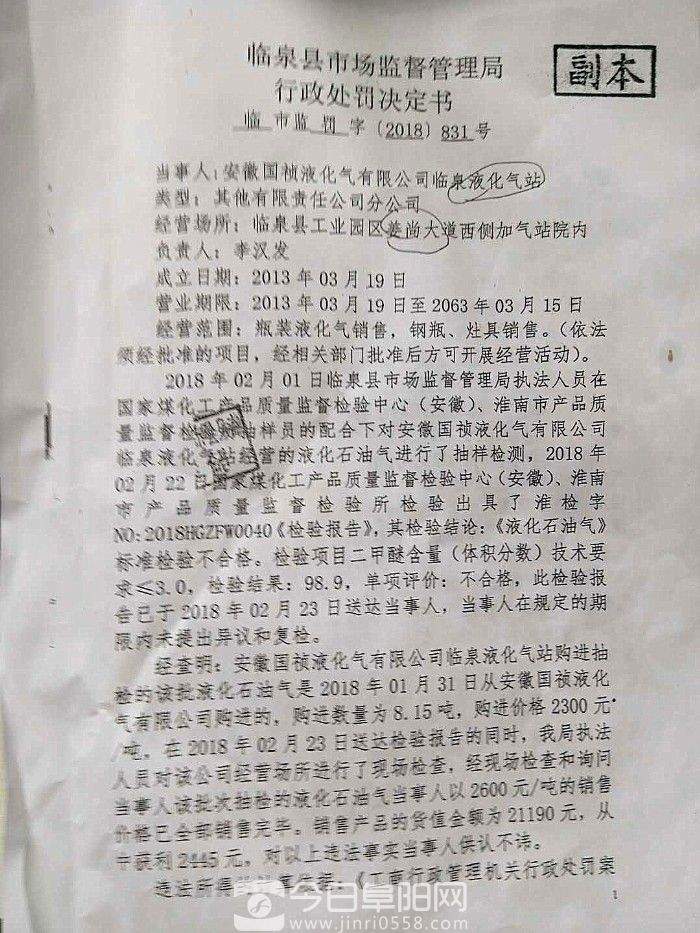 临泉县市场监督管理局
副本
行政处罚决定书
临 市 监 罚 字〔2018〕831号
当事人:安徽国祯液化气有限公司临泉液化气站
类型:其他有限责任公司分公司
经营场所:临泉县工业园区姜尚大道西侧加气站院内
负责人:李汉发
成立日期:2013年03月19日
营业期限:2013年03月19日至2063年03月15日
经营范围:瓶装液化气销售,钢瓶、灶具销售。(依法
须经批准的项目,经相关部门批准后方可开展经营活动)。
2018年02月01日临泉县市场监督管理局执法人员在
国家煤化工产品质量监督检验中心(安徽)、淮南市产品质
量监督检验所抽样员的配合下对安徽国祯液化气有限公司
临泉液化气站经营的液化石油气进行了抽样检测,2018年
02月22日国家煤化工产品质量监督检验中心(安徽)、淮南
市产品质量监督检验所检验出具了淮检字
NO:2018HGZFW0040《检验报告》,其检验结论:《液化石油气》
标准检验不合格。检验项目二甲醚含量(体积分数)技术要
求≤3.0,检验结果:98.9,单项评价:不合格,此检验报
告已于2018年02月23日送达当事人,当事人在规定的期
限内未提出异议和复检。
经查明:安徽国祯液化气有限公司临泉液化气站购进抽
检的该批液化石油气是2018年01月31日从安徽国祯液化
气有限公司购进的,购进数量为8.15吨,购进价格2300元
/吨,在2018年02月23日送达检验报告的同时,我局执法
人员对该公司经营场所进行了现场检查,经现场检查和询问
当事人该批次抽检的液化石油气当事人以2600元/吨的销售
价格已全部销售完毕。销售产品的货值金额为21190元,从
中获利2445元,对以上违法事实当事人供认不讳。
违法所得的计算依据:《工商行政管理机关行政处罚案
1
今日阜阳网
www.jinri0558.com